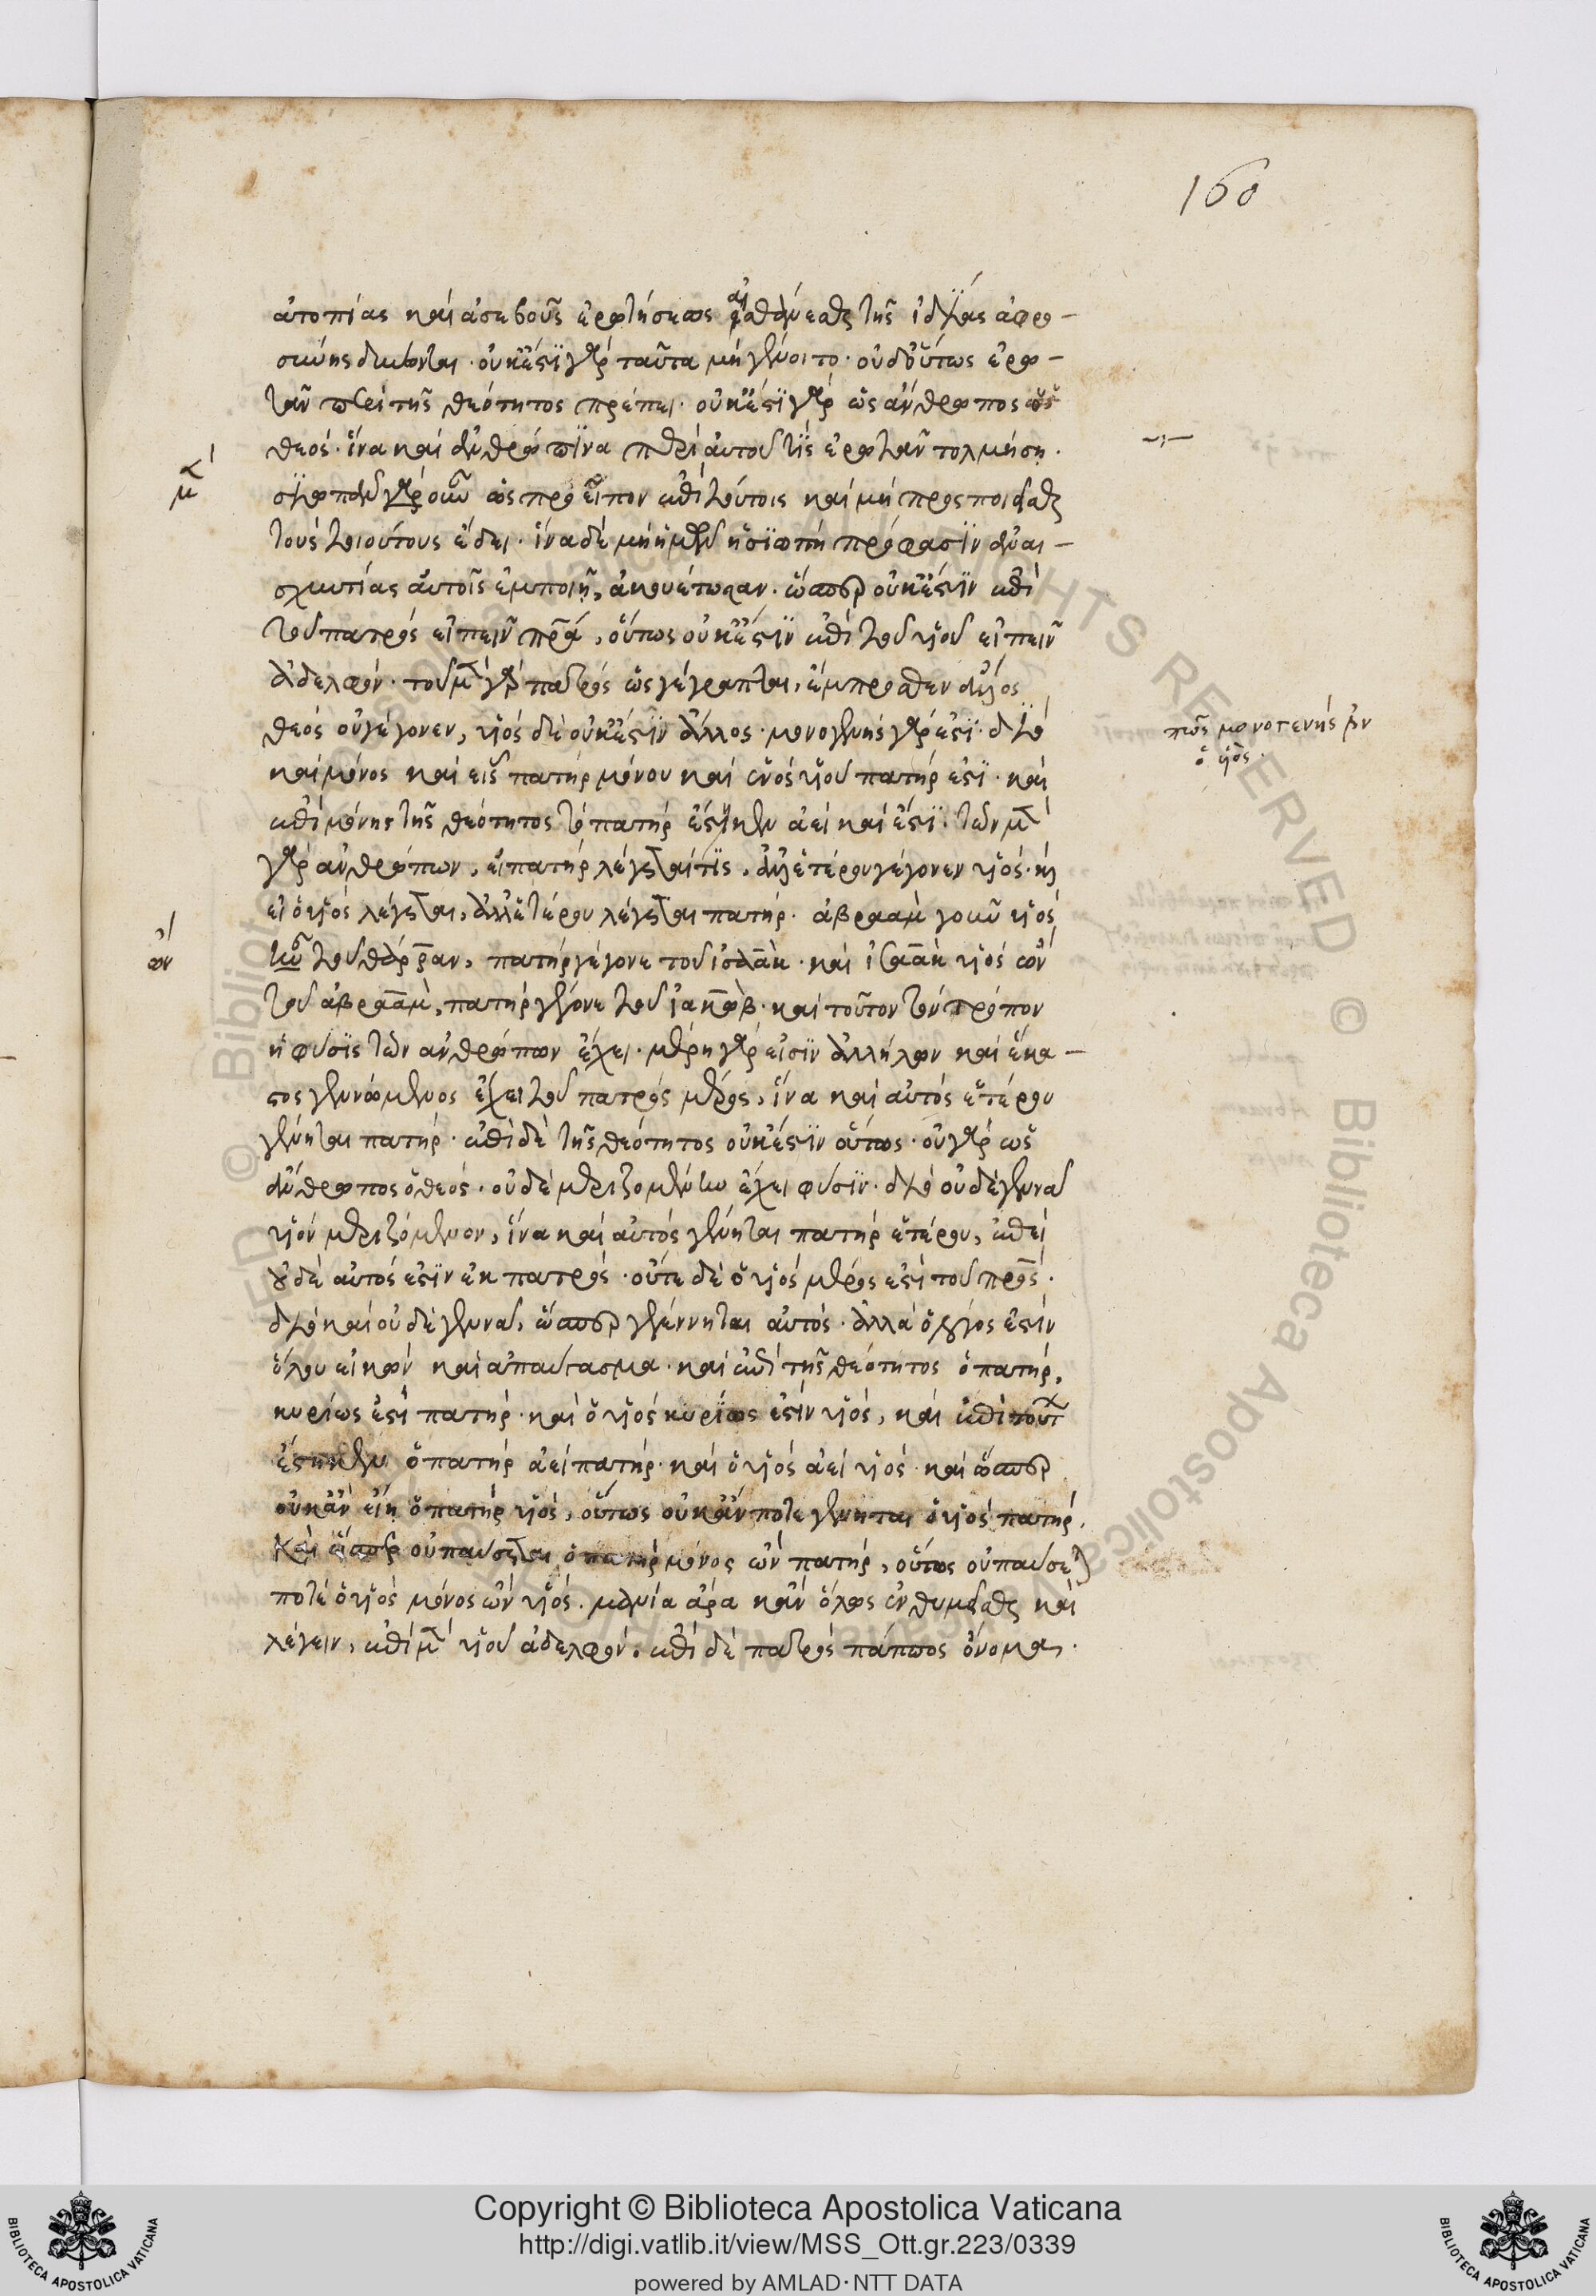 160
ἀτοπίας καὶ ἀσεβοῦς ἐρωτήσεως αἰσθάνεσθαι τῆς ἰδίας ἀφρο-
σύνης δύνωνται. οὐκ ἔστι γὰρ ταῦτα μὴ γένοιτο. οὐδ' οὕτως ἐρω-
τᾶν περὶ τῆς θεότητος πρέπει. οὐκ ἔστι γὰρ ὡς ἄνθρωπος ὁ
θεός. ἵνα καὶ ἀνθρώπινα περὶ αὐτοῦ τὶς ἐρωτᾶν τολμήσῃ.
μὲν
σιωπᾶν γὰρ οὖν ὡς προεῖπον ἐπὶ τούτοις καὶ μὴ προσποιεῖσθαι
τοὺς τοιούτους ἔδει. ἵνα δὲ μὴ ἡμῶν ἡ σιωπὴ πρόφασιν ἀναι-
σχυντίας αὐτοῖς ἐμποιῇ, ἀκουέτωσαν. ὥσπερ οὐκ ἔστιν ἐπὶ
τοῦ πατρὸς εἰπεῖν πρα, οὕτως οὐκ ἔστιν ἐπὶ τοῦ υἱοῦ εἰπεῖν
ἀδελφόν. τοῦ μὲν γὰρ πατρὸς ὡς γέγραπται, ἔμπροσθεν ἄλλος
θεὸς οὐ γέγονεν, υἱὸς δὲ οὐκ ἔστιν ἄλλος. μονογενὴς γάρ ἐστι. διὸ
πῶς μονογενής ἐστιν
ὁ υἱός.
καὶ μόνος καὶ εἷς πατὴρ μόνου καὶ ἑνὸς υἱοῦ πατήρ ἐστι. καὶ
ἐπὶ μόνης τῆς θεότητος τὸ πατὴρ ἕστηκεν ἀεὶ καὶ ἔστι. τῶν μὲν
γὰρ ἀνθρώπων, εἰ πατὴρ λέγεται τὶς, ἀλλ' ἑτέρου γέγονεν υἱός. καὶ
εἰ ὁ υἱὸς λέγεται, ἀλλ' ἑτέρου λέγεται πατήρ. ἀβραὰμ γοῦν υἱὸς
ὢν
ὢν τοῦ θάρραν, πατὴρ γέγονε τοῦ ἰσαὰκ. καὶ ἰσαὰκ υἱὸς ὢν
τοῦ ἀβραὰμ, πατὴρ γέγονε τοῦ ἰακὼβ. καὶ τοῦτον τὸν τρόπον
ἡ φύσις τῶν ἀνθρώπων ἔχει. μέρη γάρ εἰσιν ἀλλήλων καὶ ἕκα-
στος γεννώμενος ἔχει τοῦ πατρὸς μέρος, ἵνα καὶ αὐτὸς ἑτέρου
γένηται πατήρ. ἐπὶ δὲ τῆς θεότητος οὐκ ἔστιν οὕτως. οὐ γὰρ ὡς
ἄνθρωπος ὁ θεός. οὐδὲ μεριζομένην ἔχει φύσιν. διὸ οὐδὲ γεννᾶ
υἱὸν μεριζόμενον, ἵνα καὶ αὐτὸς γένηται πατὴρ ἑτέρου, ἐπεὶ
οὐδὲ αὐτός ἐστιν ἐκ πατρός. οὔτε δὲ ὁ υἱὸς μέρος ἐστὶ τοῦ πρς.
διὸ καὶ οὐδὲ γεννᾶ, ὥσπερ γεγέννηται αὐτός. ἀλλὰ ὅλος ἐστὶν
ὅλου εἰκὼν καὶ ἀπαύγασμα. καὶ ἐπὶ τῆς θεότητος ὁ πατὴρ,
κυρίως ἐστὶ πατὴρ. καὶ ὁ υἱὸς κυρίως ἐστὶν υἱός, καὶ ἐπὶ τούτων
ἕστηκεν ὁ πατὴρ ἀεὶ πατὴρ. καὶ ὁ υἱὸς ἀεὶ υἱός. καὶ ὥσπερ
οὐκ ἂν εἴη ὁ πατὴρ υἱός, οὕτως οὐκ ἄν ποτε γένηται ὁ υἱὸς πατήρ.
καὶ ὥσπερ οὐ παύσεται ὁ πατὴρ μόνος ὢν πατήρ, οὕτως οὐ παύσεταί
ποτε ὁ υἱὸς μόνος ὢν υἱός. μανία ἄρα κἂν ὅλως ἐνθυμεῖσθαι καὶ
λέγειν, ἐπὶ μὲν υἱοῦ ἀδελφόν. ἐπὶ δὲ πατρὸς πάππος ὄνομα.
Copyright © Biblioteca Apostolica Vaticana
http://digi.vatlib.it/view/MSS_Ott.gr.223/0339
powered by AMLAD·NTT DATA
BIBLIOTECA APOSTOLICA VATICANA
BIBLIOTECA APOSTOLICA VATICANA